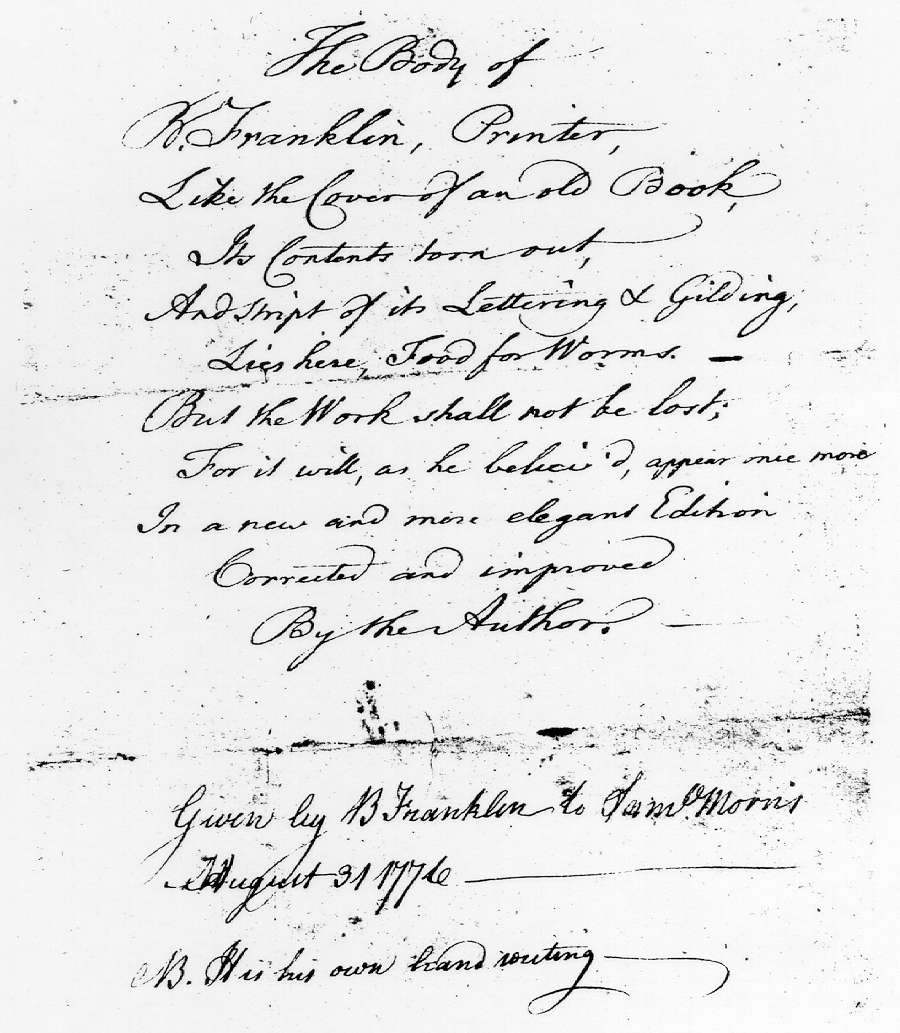 The Body of
B. Franklin, Printer,
Like the Cover of an old Book,
Its Contents torn out,
And stript of its Lettering & Gilding,
Lies here, Food for Worms. —
But the Work shall not be lost;
For it will, as he believ'd, appear once more
In a new and more elegant Edition
Corrected and improved
By the Author. —
Given by B Franklin to Saml. Morris
August 31 1776 —
NB. It is his own hand writing —